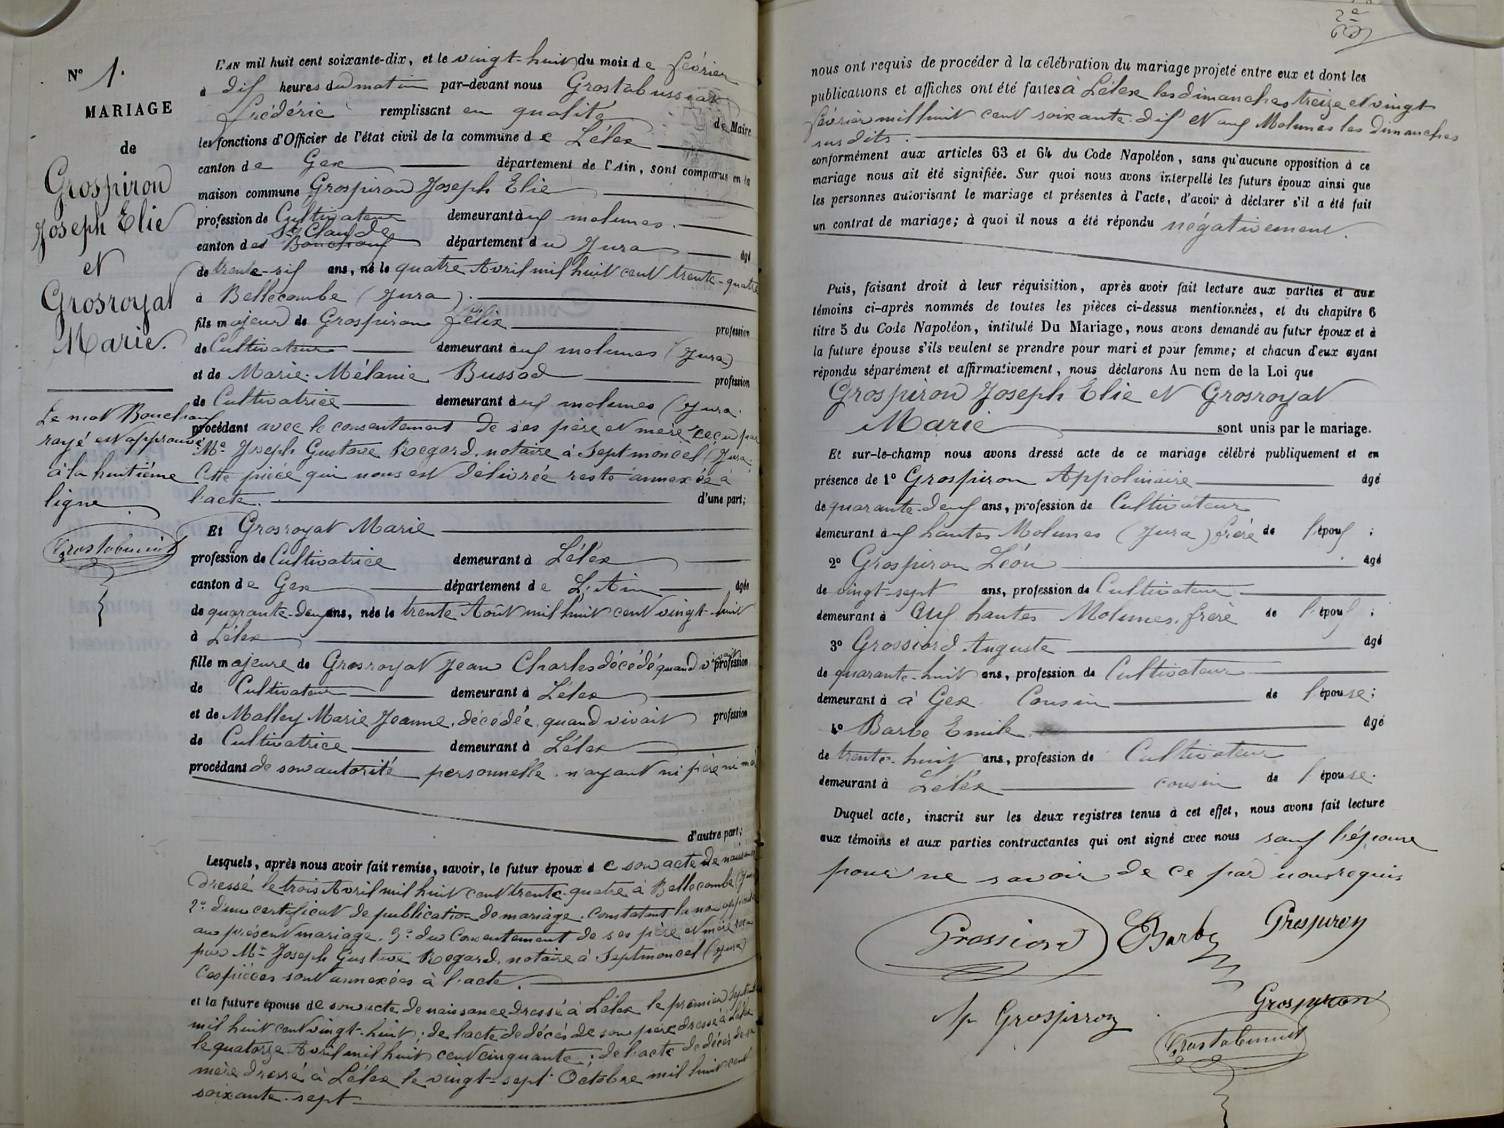 N° 1.
MARIAGE
de
Grospiron
Joseph Elie
et
Grosroyat
Marie.
Le mot Bouchoux
rayé est approuvé
à la huitième
ligne
L'AN mil huit cent soixante-dix, et le vingt-huit du mois de février
à dix heures du matin par-devant nous
Frédéric remplissant en qualité de Maire
les fonctions d'Officier de l'état civil de la commune de Lélex
canton de Gex département de l'Ain, sont comparus en la
maison commune Grospiron Joseph Elie
profession de Cultivateur demeurant aux molunes.
St Claude
canton des Bouchoux département du Jura âgé
de trente-six ans, né le quatre Avril mil huit cent trente-quatre
à Bellecombe (Jura).
fils majeur de Grospiron félix profession
de Cultivateur demeurant aux molunes (Jura)
et de Marie-Mélanie Bussod profession
de Cultivatrice demeurant aux molunes (Jura.
procédant avec le consentement de ses père et mère reçu par
Me Joseph Gustave Regard, notaire à Septmoncel (Jura
Cette pièce qui nous est délivrée reste annexée à
l'acte. d'une part;
Et Grosroyat Marie
profession de Cultivatrice demeurant à Lélex
canton de Gex département de L'Ain âgée
de quarante-deux ans, née le trente Août mil huit cent vingt-huit
à Lélex
fille majeure de Grosroyat Jean Charles décédé quand vivait profession
de Cultivateur demeurant à Lélex
et de Malley Marie Jeanne, décédée, quand vivait profession
de Cultivatrice demeurant à Lélex
procédant de son autorité personnelle n'ayant ni père ni mè
d'autre part;
Lesquels, après nous avoir fait remise, savoir, le futur époux de son acte de
dressé le trois Avril mil huit cent trente-quatre à Bellecombe
2° d'un certificat de publication de mariage, constatant la non
au présent mariage. 3° du Consentement de ses père et mère
par Me Joseph Gustave Regard, notaire à Septmoncel (Jura)
Ces pièces sont annexées à l'acte.
et la future épouse de son acte de naissance dressé à Lélex le premier
mil huit cent vingt-huit; de l'acte de décès de son père dressé à Lélex
le quatorze Avril mil huit cent cinquante; de l'acte de décès de sa
mère dressé à Lélex le vingt-sept Octobre mil huit cent
soixante-sept
nous ont requis de procéder à la célébration du mariage projeté entre eux et dont les
publications et affiches ont été faites à Lélex les dimanches treize et vingt
février mil huit cent soixante-dix et aux Molunes les dimanches
susdits.
conformément aux articles 63 et 64 du Code Napoléon, sans qu'aucune opposition à ce
mariage nous ait été signifiée. Sur quoi nous avons interpellé les futurs époux ainsi que
les personnes autorisant le mariage et présentes à l'acte, d'avoir à déclarer s'il a été fait
un contrat de mariage; à quoi il nous a été répondu négativement.
Puis, faisant droit à leur réquisition, après avoir fait lecture aux parties et aux
témoins ci-après nommés de toutes les pièces ci-dessus mentionnées, et du chapitre 6
titre 5 du Code Napoléon, intitulé Du Mariage, nous avons demandé au futur époux et à
la future épouse s'ils veulent se prendre pour mari et pour femme; et chacun d'eux ayant
répondu séparément et affirmativement, nous déclarons Au nom de la Loi que
Grospiron Joseph Elie et Grosroyat
Marie sont unis par le mariage.
Et sur-le-champ nous avons dressé acte de ce mariage célébré publiquement et en
présence de 1° Grospiron Appolinaire âgé
de quarante-deux ans, profession de Cultivateur
demeurant aux hautes Molunes (Jura) frère de l'époux;
2° Grospiron Léon âgé
de vingt-sept ans, profession de Cultivateur
demeurant à aux hautes Molunes, frère de l'époux;
3° Grossiord Auguste âgé
de quarante-huit ans, profession de Cultivateur
demeurant à à Gex Cousin de l'épouse;
4° Barbe Emile âgé
de trente-huit ans, profession de Cultivateur
demeurant à Lélex cousin de l'épouse.
Duquel acte, inscrit sur les deux registres tenus à cet effet, nous avons fait lecture
aux témoins et aux parties contractantes qui ont signé avec nous sauf l'épouse
pour ne savoir de ce par nous requis
Grossiord Barbe Grospiron
Ap Grospiron Grospiron